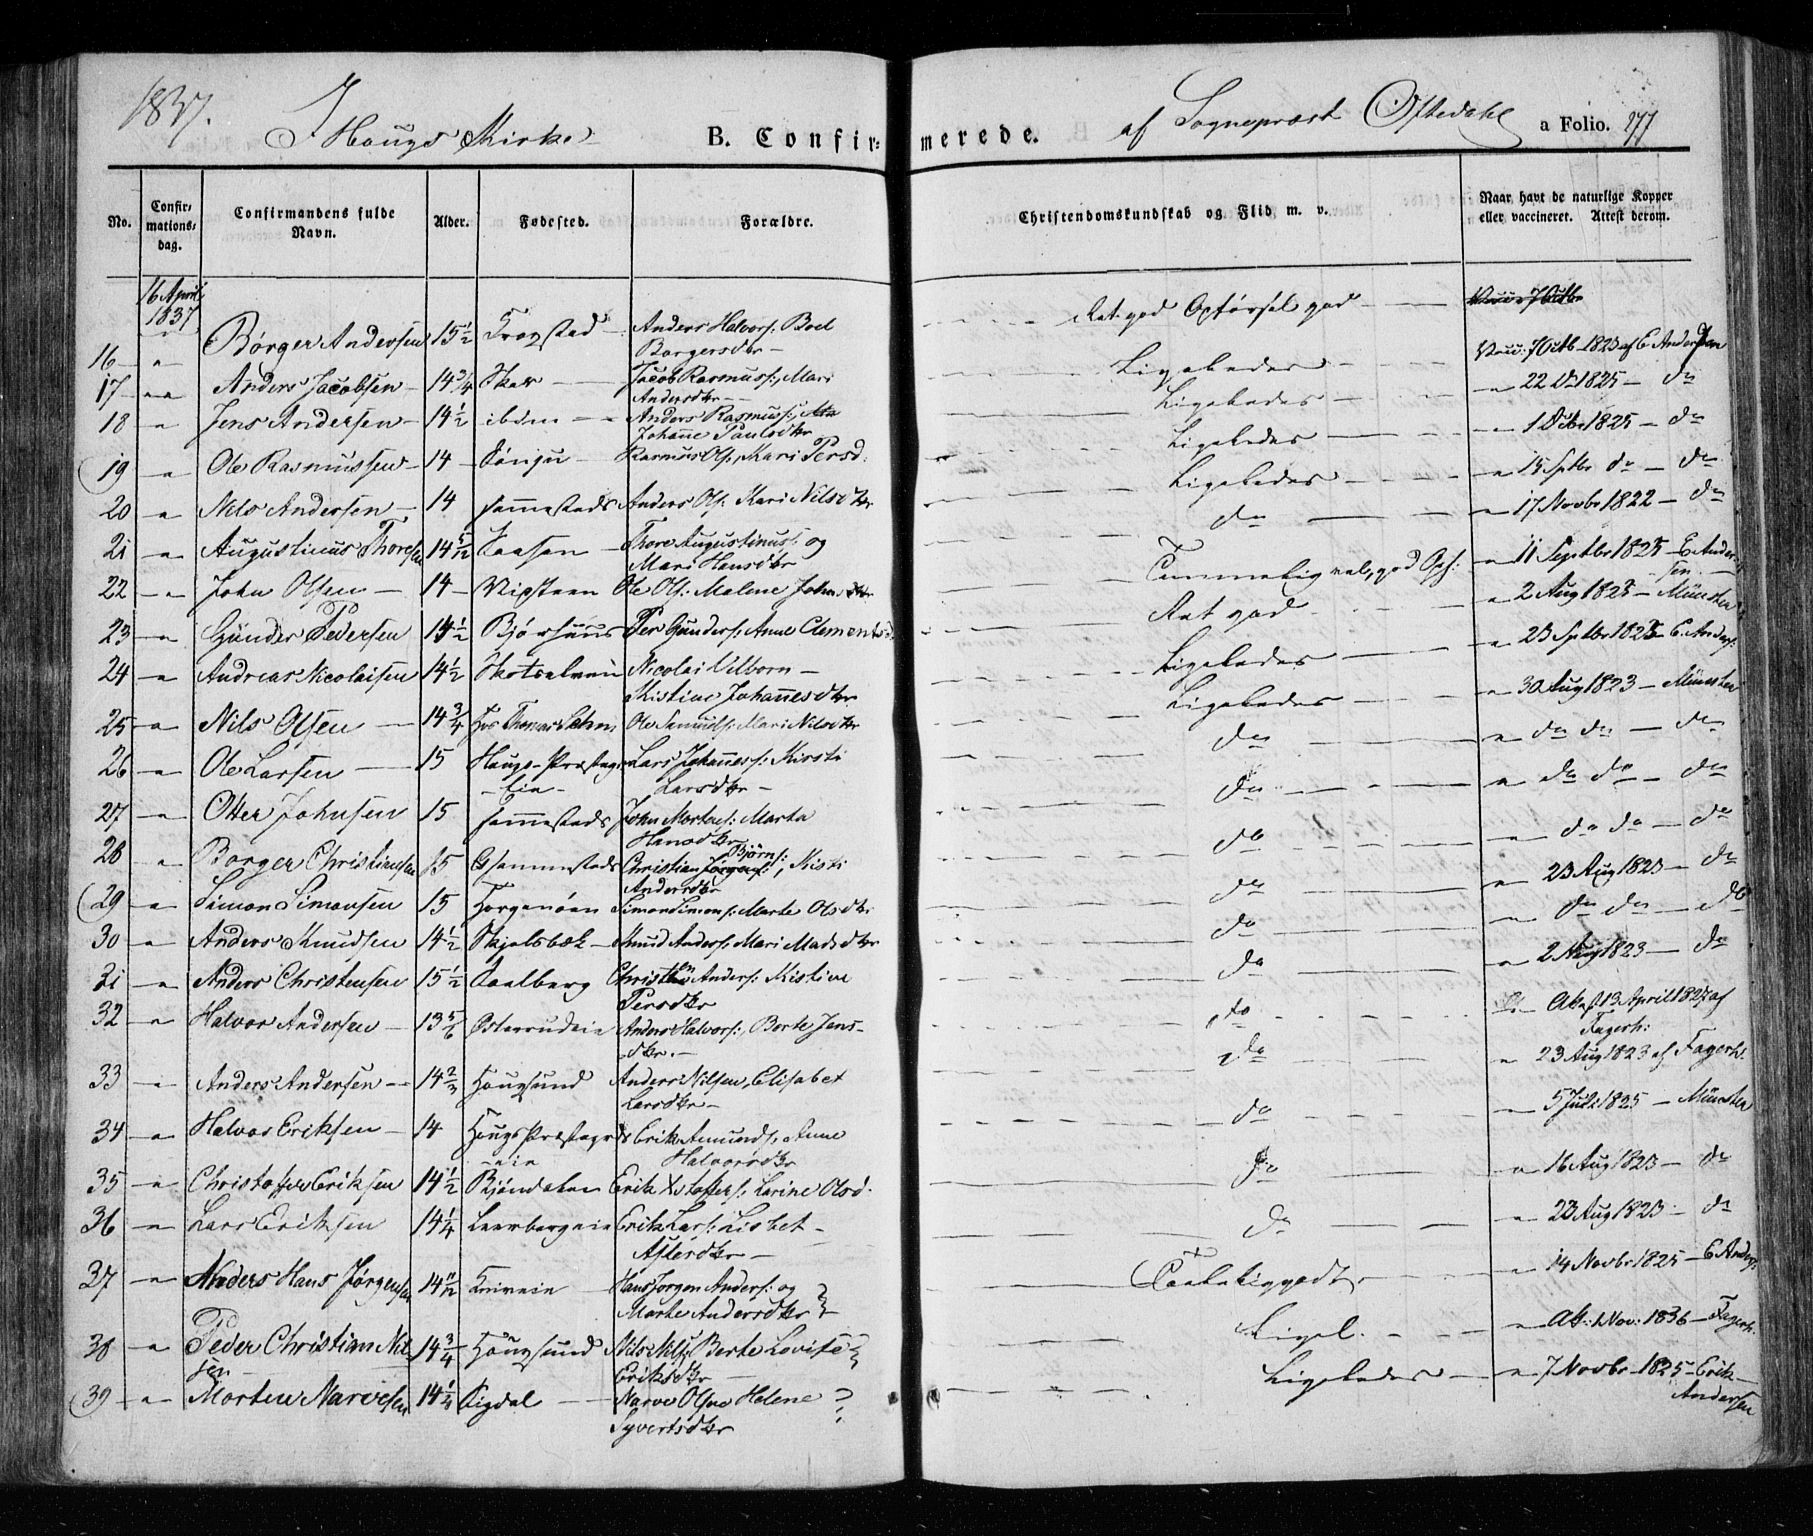 1837.
I Hougs Kirke
B. Confirmerede.
af Sognepræst Oftedahl
a Folio. 277
No.
Confirmationsdag.
Confirmandens fulde Navn.
Alder.
Fødested.
Forældre.
Christendomskundskab og Flid m. v.
Naar havt de naturlige Kopper eller vaccineret. Attest derom.
16 April 1837
16 " Børger Andersen 15½ Anders Halvors: Boel Borgersdtr Meget god Opførsel god Vacc: 7 Octb 1823 af E. Andersen
17 " Anders Jacobsen 14¾ Jacob Rasmus:, Mari Andersdtr Ligeledes " 22 1825 do
18 " Jens Andersen 14½ ibidm Anders Rasmus: Johanne Paulsdtr Ligeledes " 1 1825 do
19 " Ole Rasmussen 14 Rasmus Ols:, Mari Persd: Ligeledes " 15 Sptbr do do
20 " Nils Andersen 14 sammesteds Anders Ols: Kari Nilsdtr Ligeledes " 17 Novbr 1822 do
21 " Augustinus Thoresen 14 5/12 Thore Augustinus: og Mari Hansdtr do " 11 Septbr 1825 E. Andersen
22 " John Olsen 14 Ole Ols: Malene Johnsdtr Temmelig vel, god Opf: " 2 Aug 1825 Münster
23 " Gunder Pedersen 14½ Per Gunders: Anne Clementsd: god " 23 Sptbr 1825 E. Anders:
24 " Andreas Nicolaisen 14½ Nicolai Kistine Johannesdtr Ligeledes " 30 Aug 1823 Münster
25 " Nils Olsen 14¾ Ole Mari Nilsdtr Ligeledes " do do do
26 " Ole Larsen 15 Hougs Præstegrd Eie Lars Johannes: Kirsti Larsdtr do " do do do
27 " Otter Johnsen 15 sammesteds John Mortens: Marta Hansdtr do " do do do
28 " Borger Christiansen 15 sammesteds Christian Bjørns:, Kisti Andersdtr do " 23 Aug 1823 do
29 " Simon Simonsen 15 Simon Simons: Marte Olsdtr do " do do do
30 " Anders Knudsen 14½ Skjelsbæk Knud Anders: Mari Madsdtr do " 2 Aug 1823 do
31 " Anders Christensen 15½ Anders: Kistine Persdtr do At. 13 April 1827 af Fagerh:
32 " Halvor Andersen 13 5/6 Anders Halvors:, Berte Jensdtr. do " 23 Aug 1823 af Fagerh.
33 " Anders Andersen 14⅔ Hougsund Anders Nilsen, Elisabet Larsdtr do " 5 Juli 1825 Münster
34 " Halvor Eriksen 14 Hougs Præstegrds eie Erik Amunds: Anne Halvorsdtr do " 16 Aug 1823 do
35 " Christoffer Eriksen 14½ Erik Larine Olsd. do " 23 Aug 1823 do
36 " Lars Eriksen 14¼ Erik Lars: Lisbet do " 14 Novbr 1825 E. Anders:
37 " Anders Hans Jørgensen 14 11/12 Hans Jørgen Anders: og Marte Andersdtr godt At: 1 Nov: 1836 Fagerh.
38 " Peder Christian Nilsen 14¾ Hougsund Nils Nils: Berte Lovise Eriksdtr Ligel. " 7 Novbr 1825 Erik Andersen
39 " Morten Narvesen 14¼ Sigdal Narve Olsen Helene Syvertsdtr ? Ligeledes